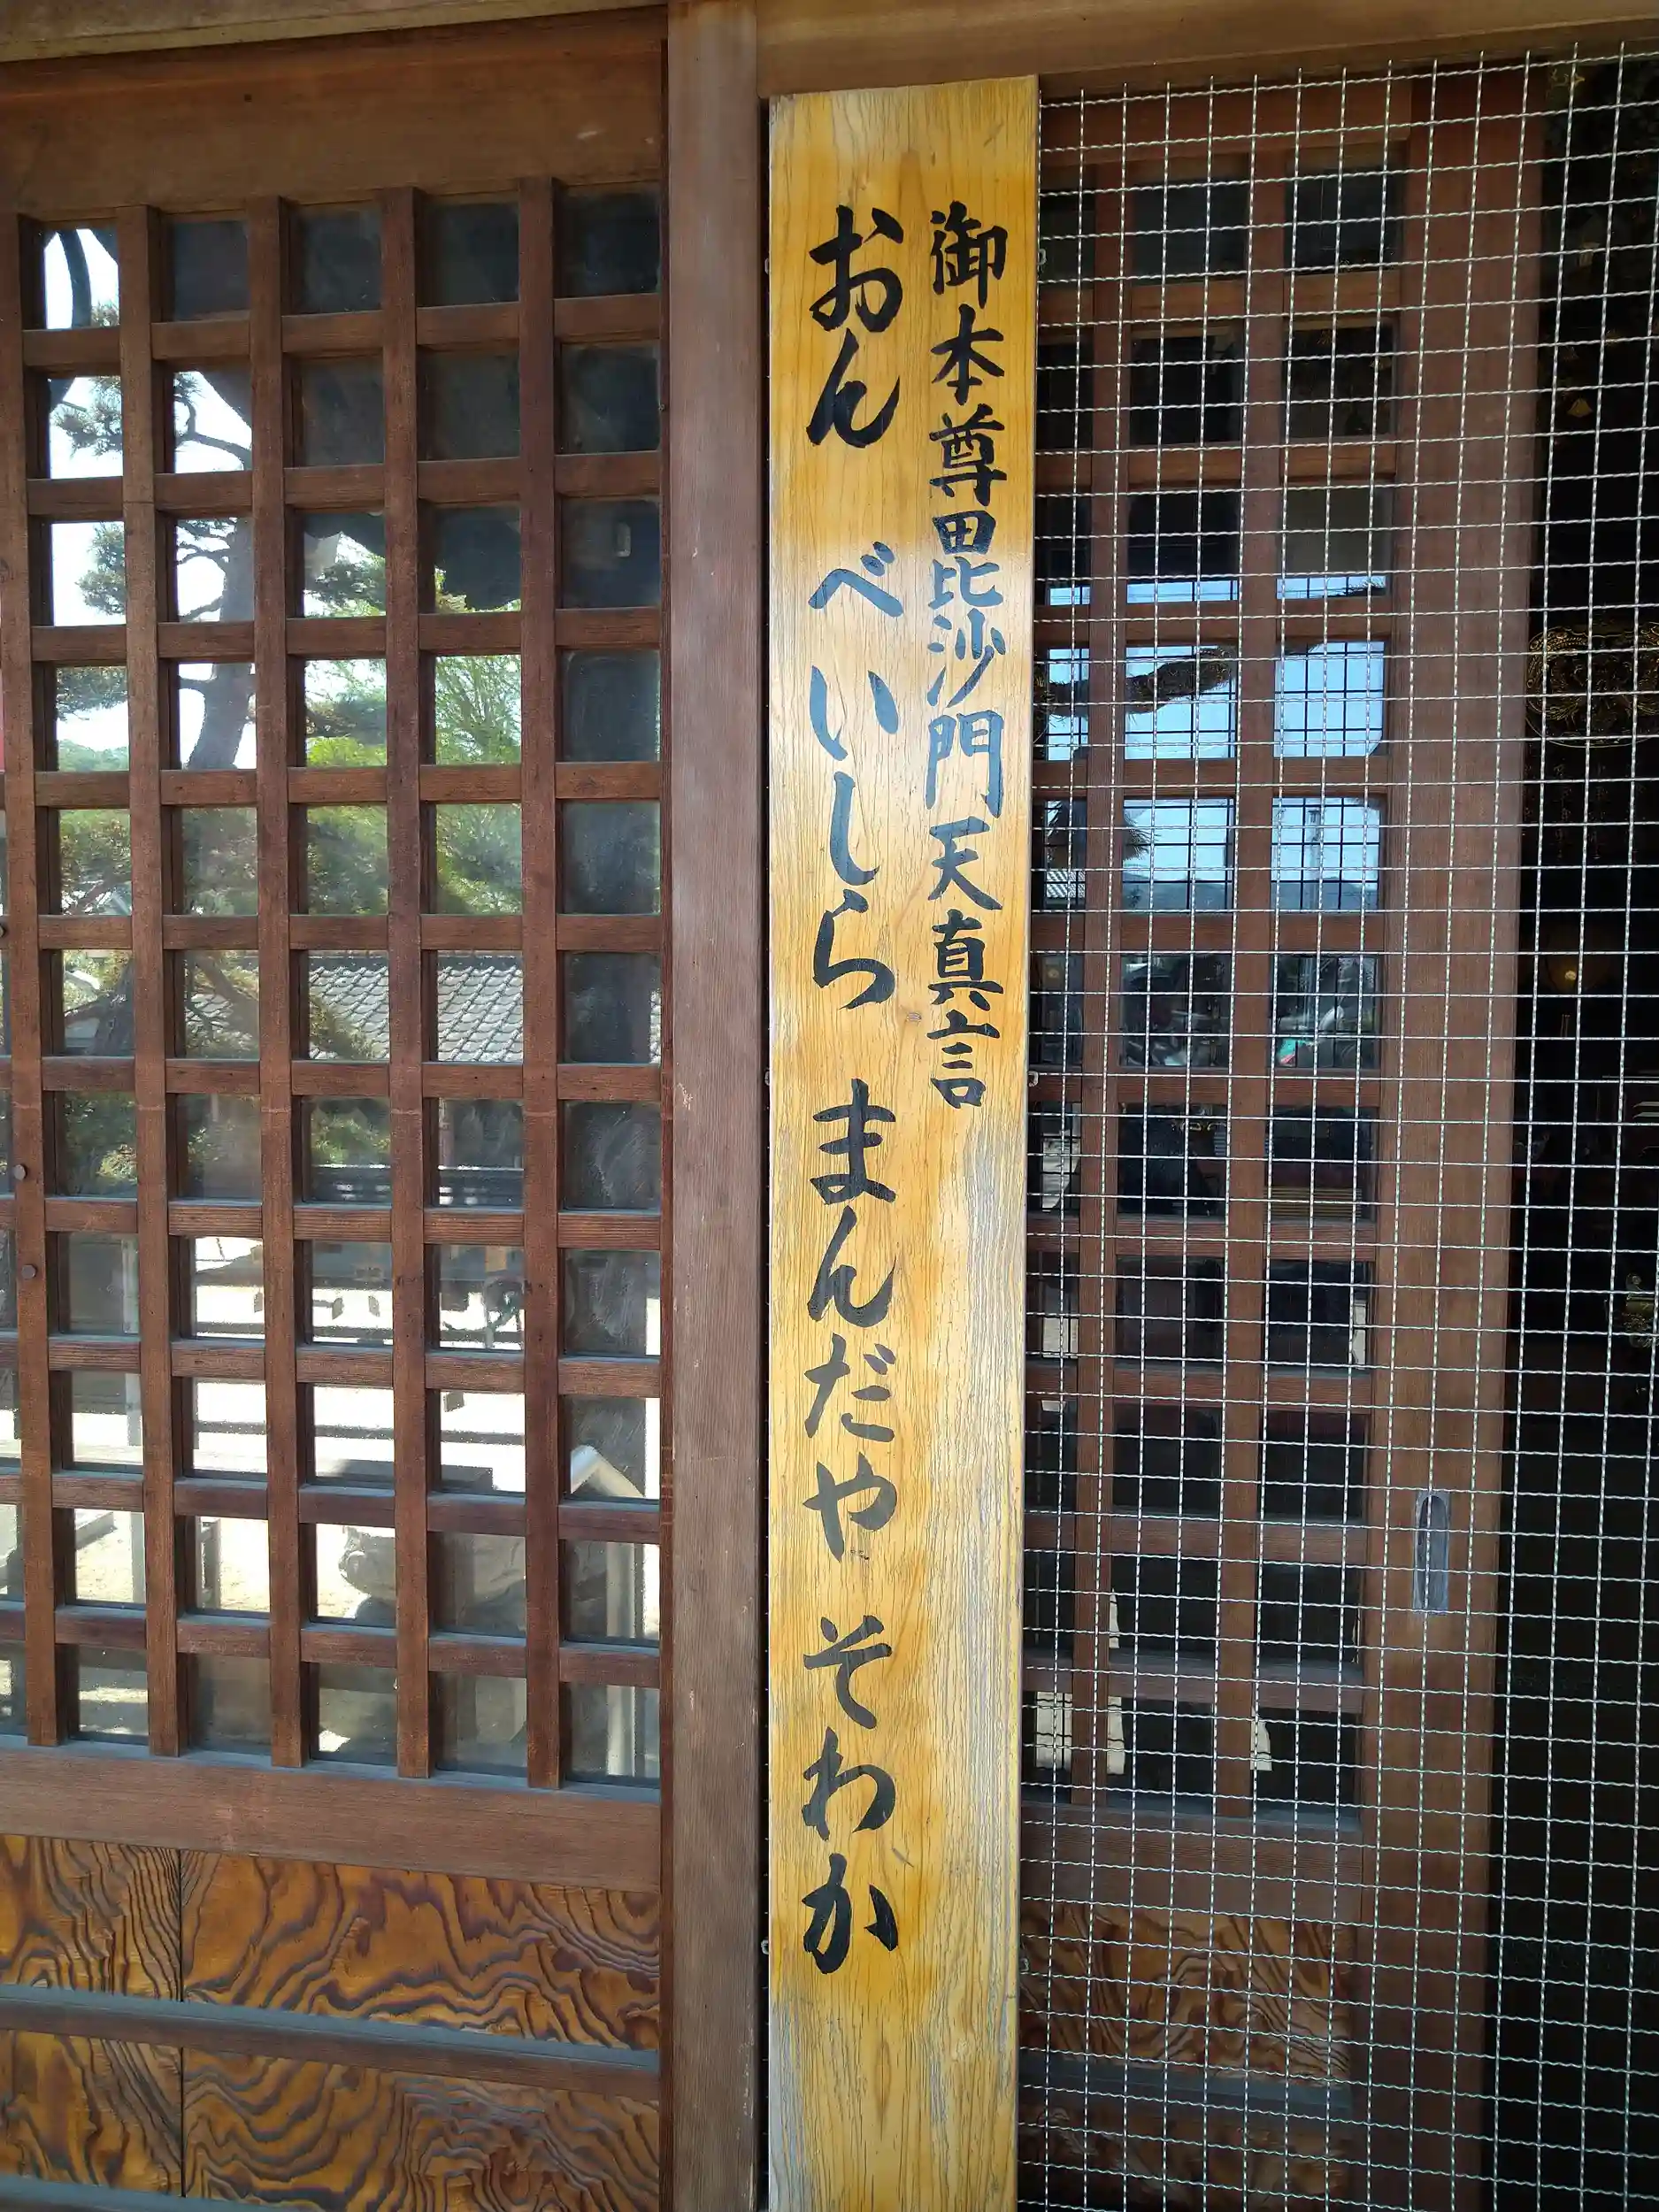 御本尊毘沙門天真言
おん べいしら まんだや そわか